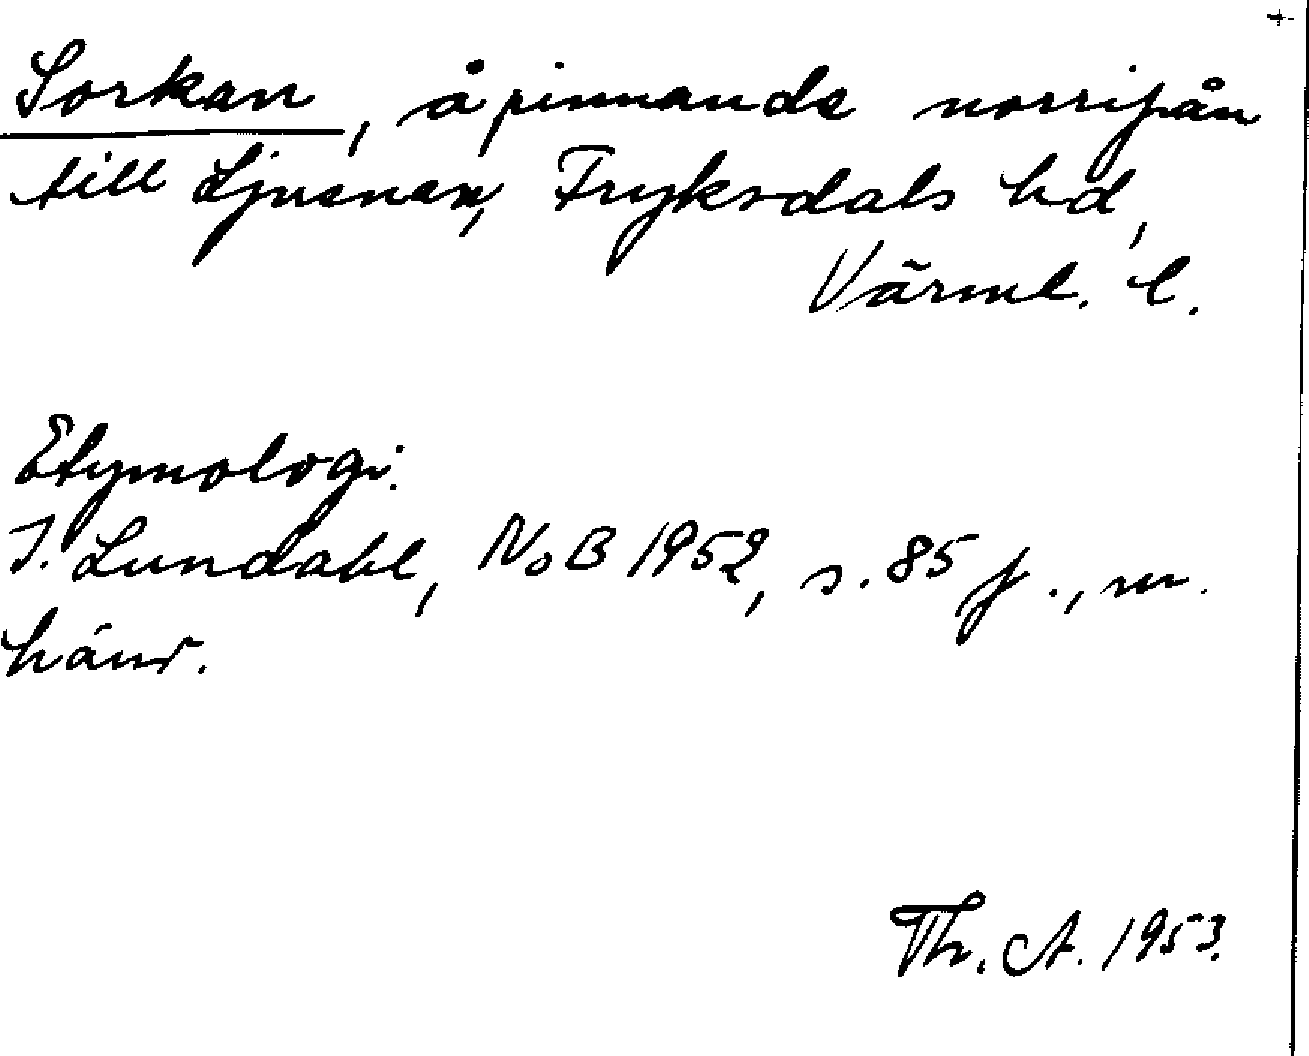 +
Sorkan, å rinnande norrifrån
till Ljusnan, Fryksdals hd,
Värml. l.
Etymologi.
I. Lundahl, NoB 1952, s. 85 f., m.
hänv.
Th. A. 1953.